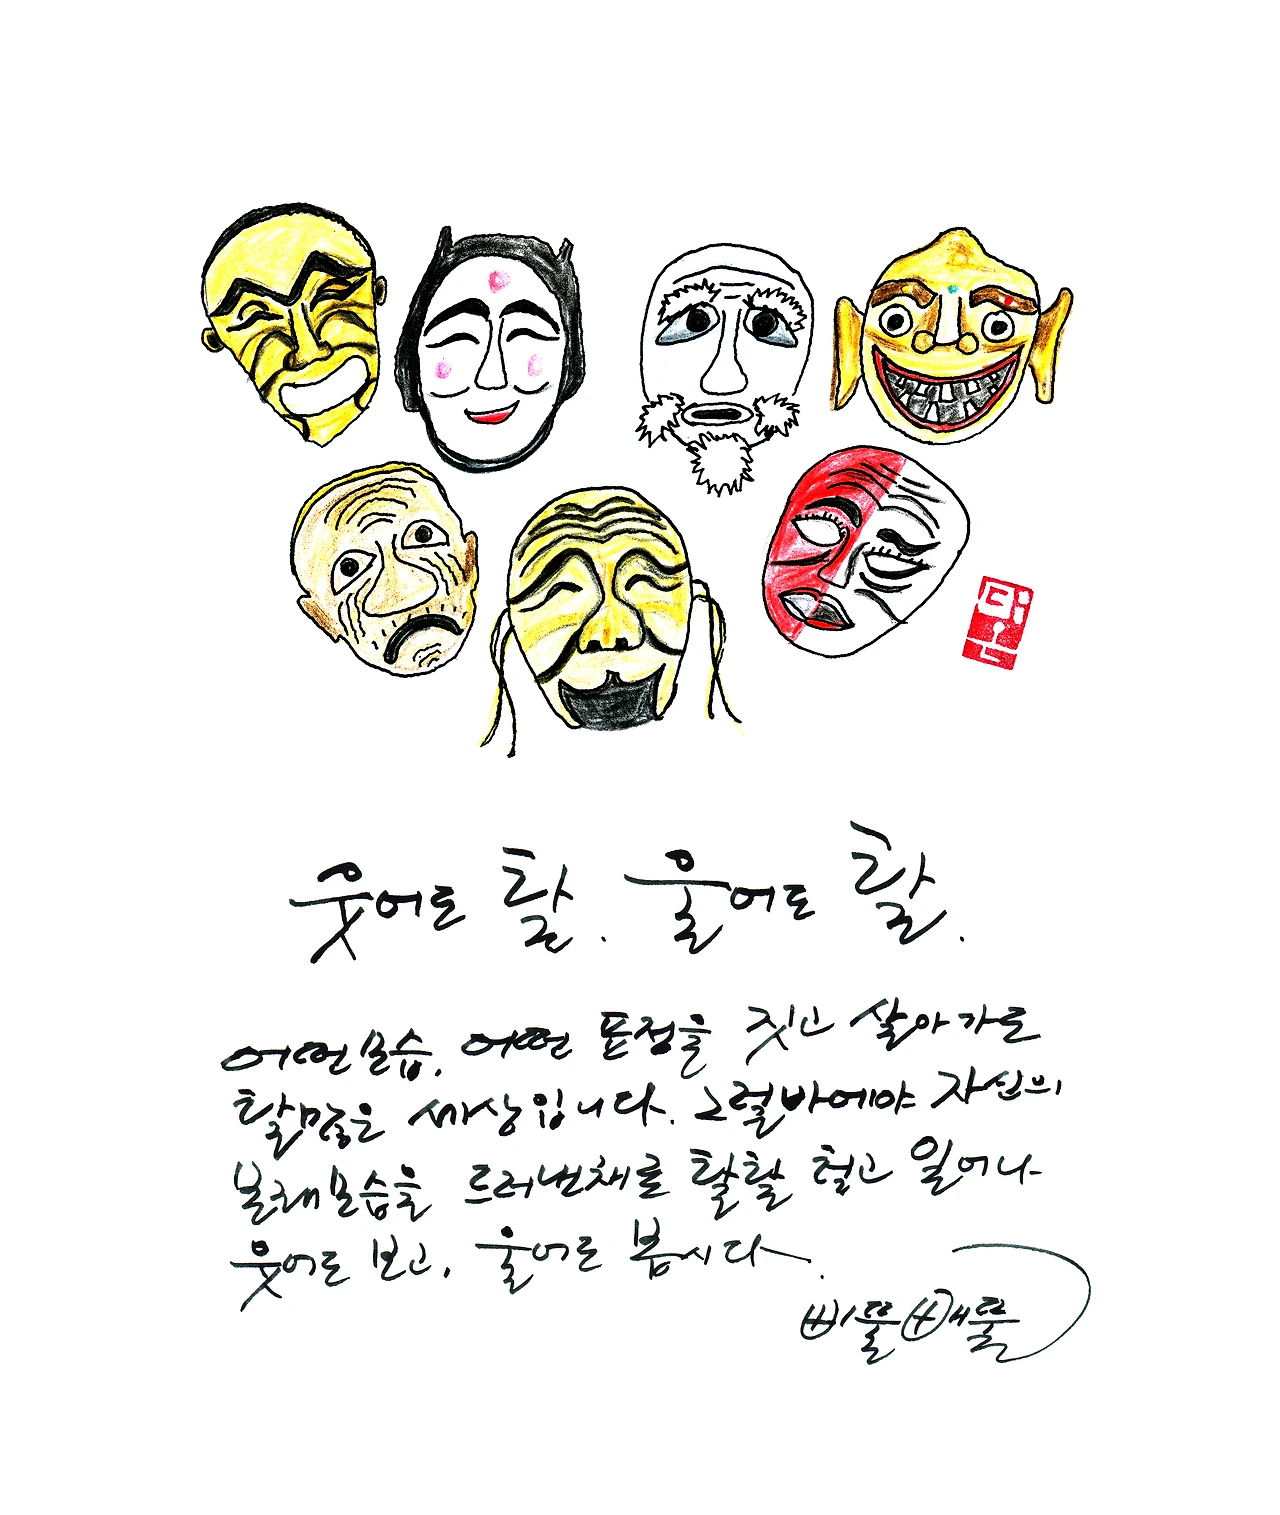 웃어도 탈. 울어도 탈.
어떤모습, 어떤 표정을 짓고 살아가도
탈많은 세상입니다. 그럴바에야 자신의
본래모습을 드러낸채로 탈탈 털고 일어나
웃어도 보고, 울어도 봅시다.
삐뚤빼뚤